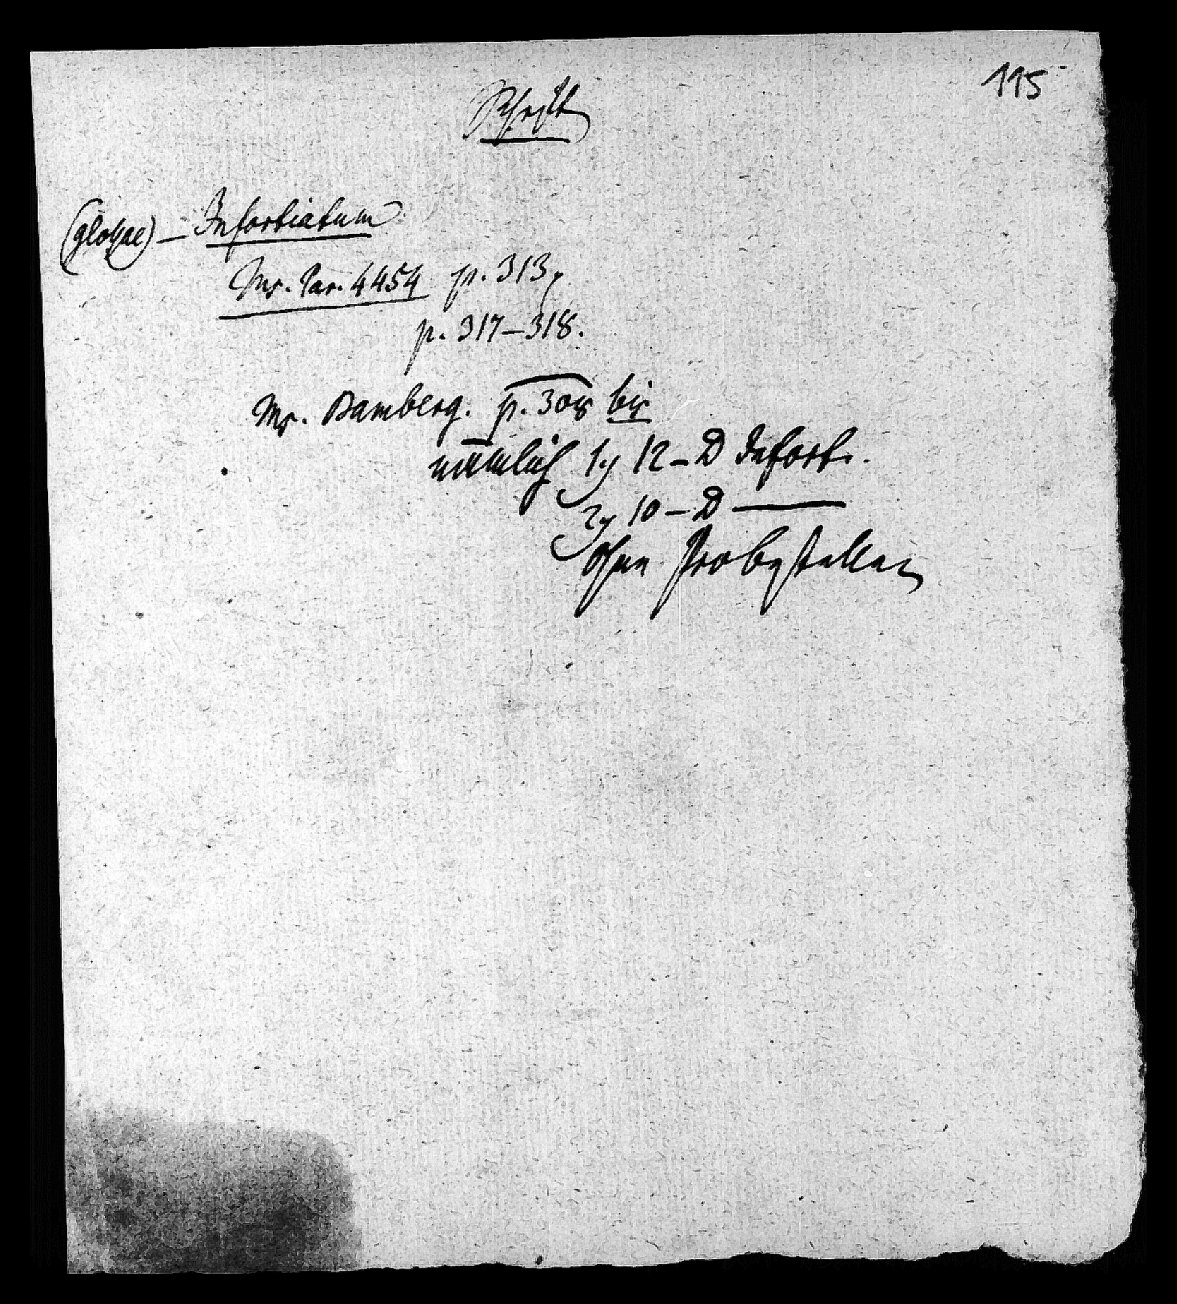 115
(glossae) – Infortiatum
Ms. Par. 4454 p. 313,
p. 317–318.
Ms. Bamberg. p. 308 bis
nämlich 1) 12 – D Infort.
2) 10 – D —
ohne Probestellen